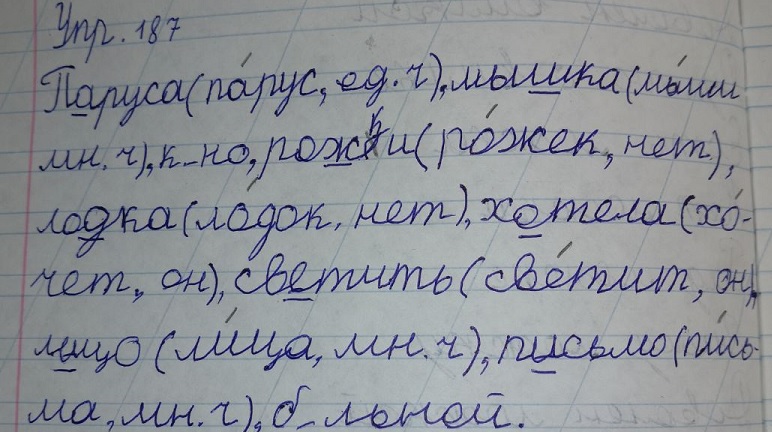 Упр. 187
Паруса (па́рус, ед. ч), мышка (мы́ши
мн. ч), к_но, рожки (ро́жек, нет),
лодка (ло́док, нет), хотела (хо́-
чет, он), светить (све́тит, он),
лицо (ли́ца, мн. ч), письмо (пи́сь-
ма, мн. ч), б_льной.